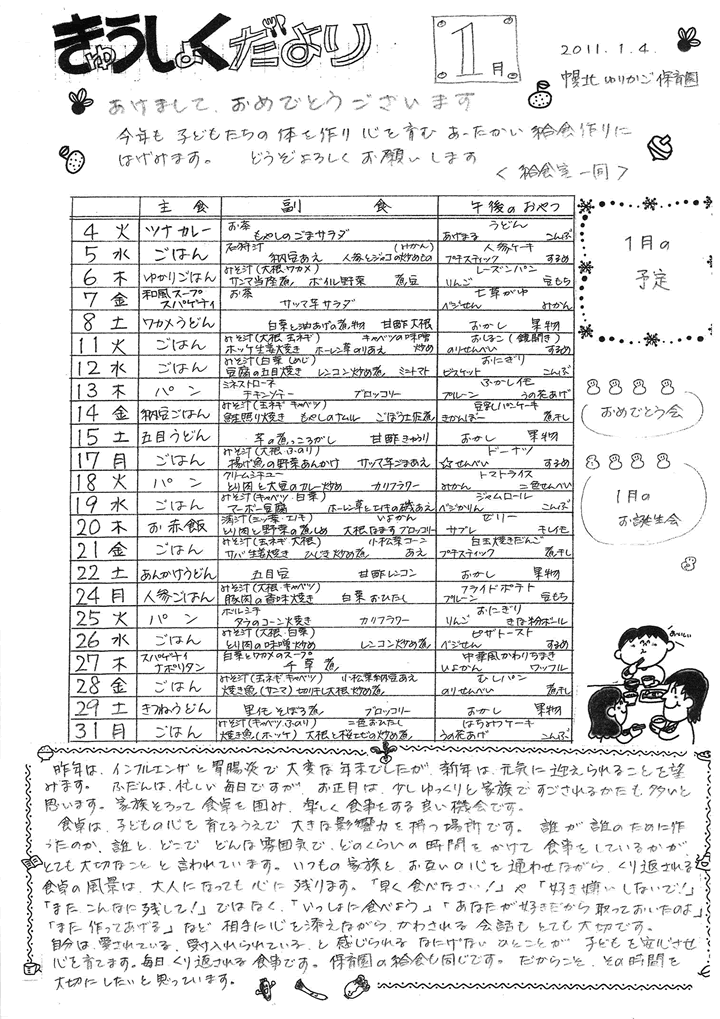 きゅうしょくだより
1月
2011.1.4.
幌北ゆりかご保育園
あけまして、おめでとうございます
今年も 子どもたちの 体を作り 心を育む あったかい 給食作りに
はげみます。 どうぞよろしく お願いします
<給食室一同>
主食 副食 午後のおやつ
4 火 ツナカレー お茶 うどん
もやしのごまサラダ あげまる こんぶ
5 水 ごはん 石狩汁 (みかん) 人参ケーキ
納豆あえ 人参とジャコの炒めもの プチスティック するめ
6 木 ゆかりごはん みそ汁(大根 ワカメ) レーズンパン
サンマ当座煮 ボイル野菜 煮豆 りんご 豆もち
7 金 和風スープスパゲティ お茶 七草がゆ
サツマ芋サラダ ベジせん みかん
8 土 ワカメうどん 白菜と油あげの煮物 甘酢大根 おかし 果物
11 火 ごはん みそ汁(大根 玉ネギ) キャベツの味噌炒め おしるこ (鏡開き)
ホッケ生姜焼き ホーレン草のりあえ のりせんべい するめ
12 水 ごはん みそ汁(白菜 しめじ) おにぎり
豆腐の五目焼き レンコン炒め煮 ミニトマト ビスケット こんぶ
13 木 パン ミネストローネ ふかしイモ
チキンソテー ブロッコリー プルーン うの花あげ
14 金 納豆ごはん みそ汁(玉ネギ キャベツ) 豆乳パンケーキ
鮭照り焼き もやしのナムル ごぼう土佐煮 きかんぼー 煮干し
15 土 五目うどん 芋の煮っころがし 甘酢きゅうり おかし 果物
17 月 ごはん みそ汁(大根・ふのり) ドーナツ
揚げ魚の野菜あんかけ サツマ芋ごまあえ ☆せんべい するめ
18 火 パン クリームシチュー トマトライス
とり肉と大豆のカレー炒め カリフラワー みかん 二色せんべい
19 水 ごはん みそ汁(キャベツ・白菜) ジャムロール
マーボー豆腐 ホーレン草とエノキの磯あえ ベジかりん こんぶ
20 木 お赤飯 清汁(三ッ葉・エノキ) いよかん ゼリー
とり肉と野菜の煮しめ 大根なます ブロッコリー サブレ 干しイモ
21 金 ごはん みそ汁(玉ネギ・大根) 小松菜コーンあえ 白玉焼きだんご
サバ生姜焼き ひじき炒め煮 プチスティック 煮干し
22 土 あんかけうどん 五目豆 甘酢レンコン おかし 果物
24 月 人参ごはん みそ汁(大根・キャベツ) フライドポテト
豚肉の香味焼き 白菜おひたし プルーン 豆もち
25 火 パン ボルシチ おにぎり
タラのコーン焼き カリフラワー りんご きな粉ボール
26 水 ごはん みそ汁(大根・白菜) ピザトースト
とり肉の味噌炒め レンコン炒め煮 ベジせん するめ
27 木 スパゲティナポリタン 白菜とワカメのスープ 中華風かわりちまき
千草煮 いよかん ワッフル
28 金 ごはん みそ汁(玉ネギ キャベツ) 小松菜納豆あえ むしパン
焼き魚(サンマ) 切り干し大根炒め煮 のりせんべい 煮干し
29 土 きつねうどん 里イモそぼろ煮 ブロッコリー おかし 果物
31 月 ごはん みそ汁(キャベツ・ふのり) 二色おひたし はちみつケーキ
焼き魚(ホッケ) 大根と桜エビの炒め煮 うの花あげ こんぶ
1月の
予定
おめでとう会
1月の
お誕生会
おいしい
昨年は、インフルエンザと胃腸炎で 大変な年末でしたが、新年は、元気に迎えられることを望
みます。 ふだんは、忙しい毎日ですが、お正月は、少しゆっくりと家族ですごされるかたも多いと
思います。家族そろって 食卓を囲み、楽しく食事をする良い機会です。
食卓は、子どもの心を育てるうえで 大きな影響力を持つ場所です。 誰が誰のために作
ったのか、誰と、どこで どんな雰囲気で、どのくらいの時間をかけて 食事をしているかが、
とても大切なこと と言われています。いつもの家族と、お互いの心を通わせながら、くり返される
食卓の風景は、大人になっても 心に残ります。「早く食べなさい!」や「好き嫌いしないで!」
「また、こんなに残して!」ではなく、「いっしょに食べよう」「あなたが好きだから取っておいたのよ」
「また作ってあげる」など 相手に心を添えながら、かわされる会話もとても大切です。
自分は、愛されている、受け入れられている、と 感じられる なにげない ひとことが 子どもを安心させ
心を育てます。毎日くり返される 食事です。保育園の給食も同じです。だからこそ、その時間を
大切にしたいと思っています。